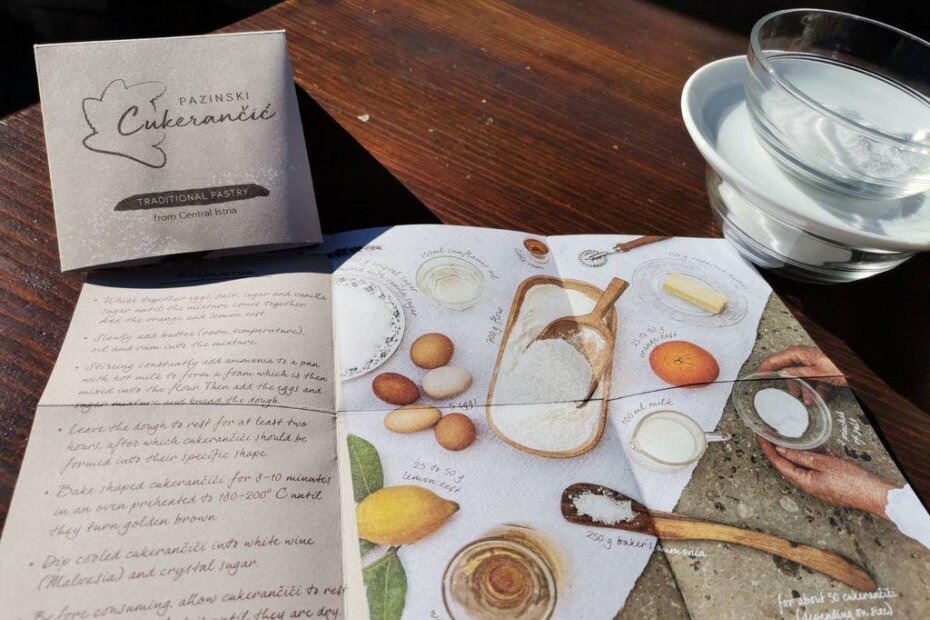 PAZINSKI
Cukerančić
TRADITIONAL PASTRY
from Central Istria
Preparation
• Whisk together eggs, salt, sugar and vanilla
sugar until the mixture comes together
Add the orange and lemon zest
• Slowly add butter (room temperature),
oil and rum into the mixture.
• Stirring constantly add ammonia to a pan
with hot milk to form a foam which is then
mixed into the flour. Then add the eggs and
sugar mixture and knead the dough.
• Leave the dough to rest for at least two
hours, after which cukerančići should be
formed into their specific shape.
• Bake shaped cukerančići for 8-10 minutes
in an oven preheated to 180-200° C until
they turn golden brown.
• Dip cooled cukerančići into white wine
(Malvasia) and crystal sugar
Before consuming, allow cukerančići to rest
until they are dry.
150ml sunflower oil
flour
25 to 50 g
orange zest
100 ml milk
25 to 50 g
lemon zest
250 g baker's ammonia
of salt
for about 50 cukerančići
(depending on size)